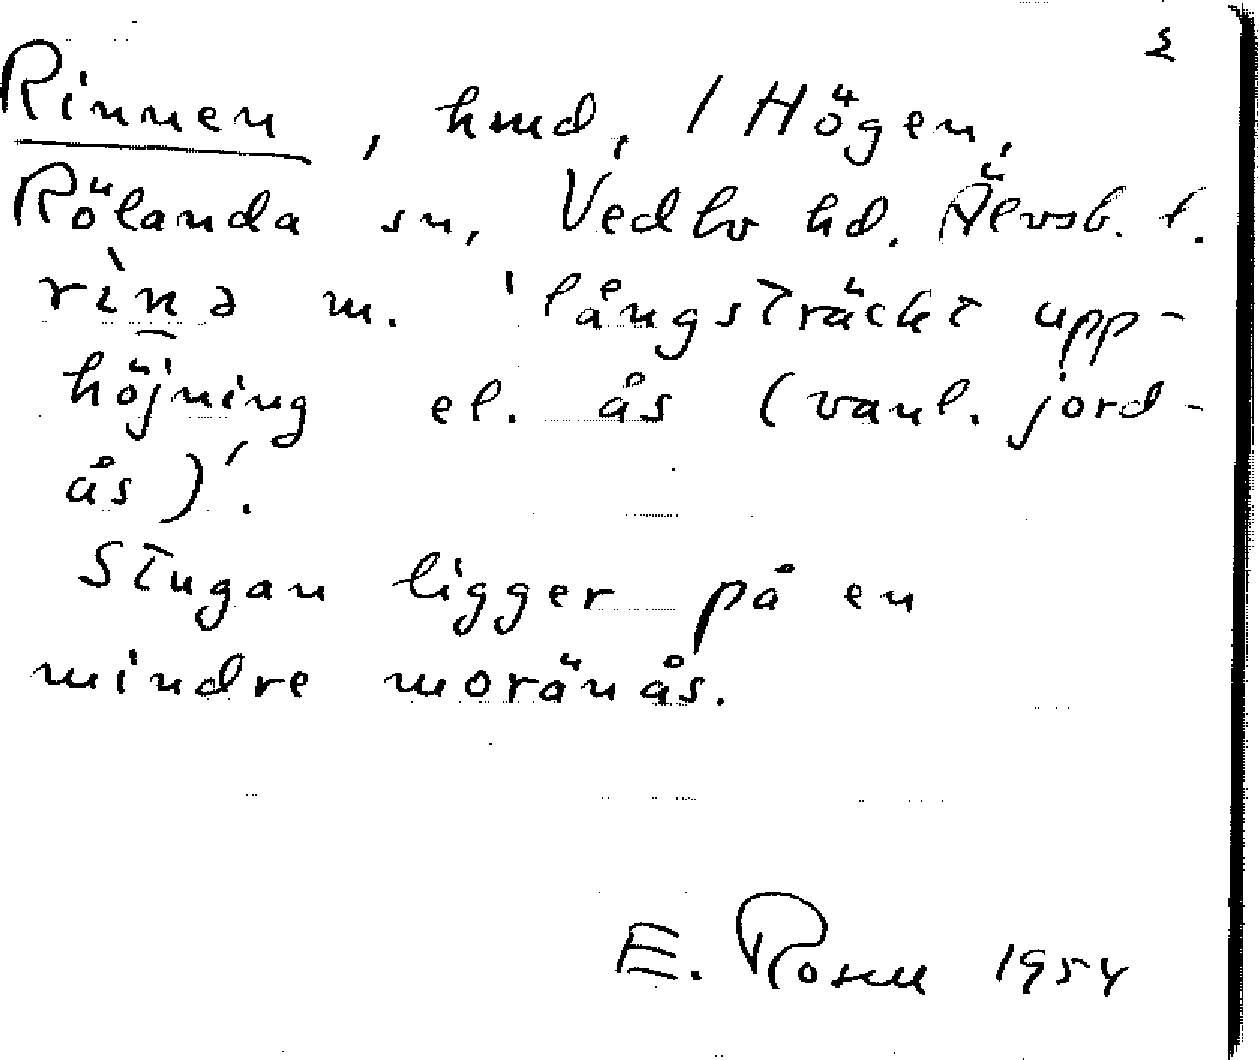 Rinnen, hmd, 1 Högen,
Rölanda sn, Vedbo hd. Älvsb. l.
rìnə m. 'långsträckt upp-
höjning el. ås (vanl. jord-
ås)'.
Stugan ligger på en
mindre moränås.
E. Rosell 1954